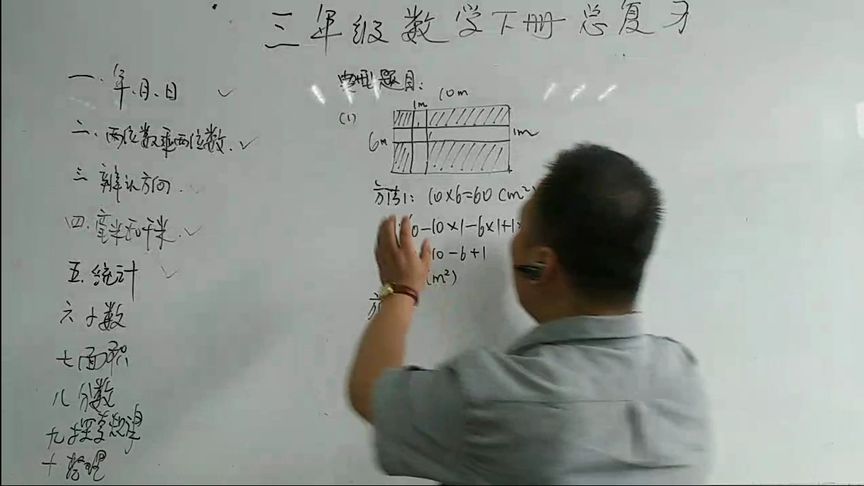 三年级数学下册总复习
一.年.月.日 ✓
二.两位数乘两位数.✓
三 辨认方向.
四.毫米和千米.✓
五.统计 ✓
六 小数
七面积
八分数
九探索规律
十整理
典型题目:
(1)
1m 10m
6m 1m
方法1: 10×6=60(m²)
0-10×1-6×1+1×
10-6+1
(m²)
方